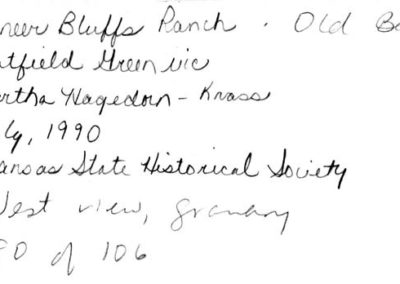 neer Bluffs Ranch . Old Ba
tfield Green vic
rtha Nagedorn - Knass
ly, 1990
ansas State Historical Society
West view, granary
0 of 106